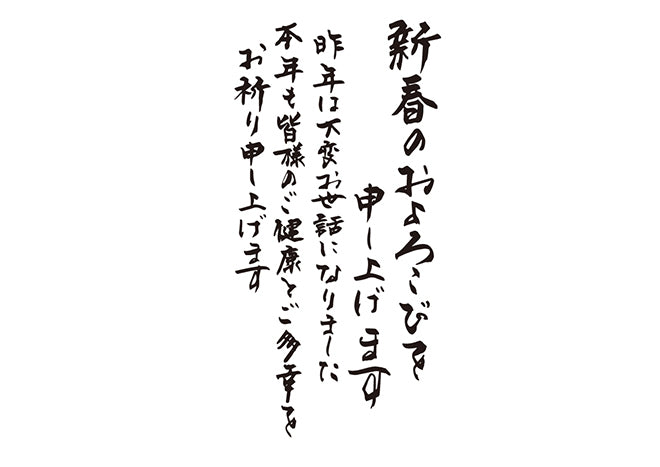 新春のおよろこびを
申し上げます
昨年は大変お世話になりました
本年も皆様のご健康とご多幸を
お祈り申し上げます